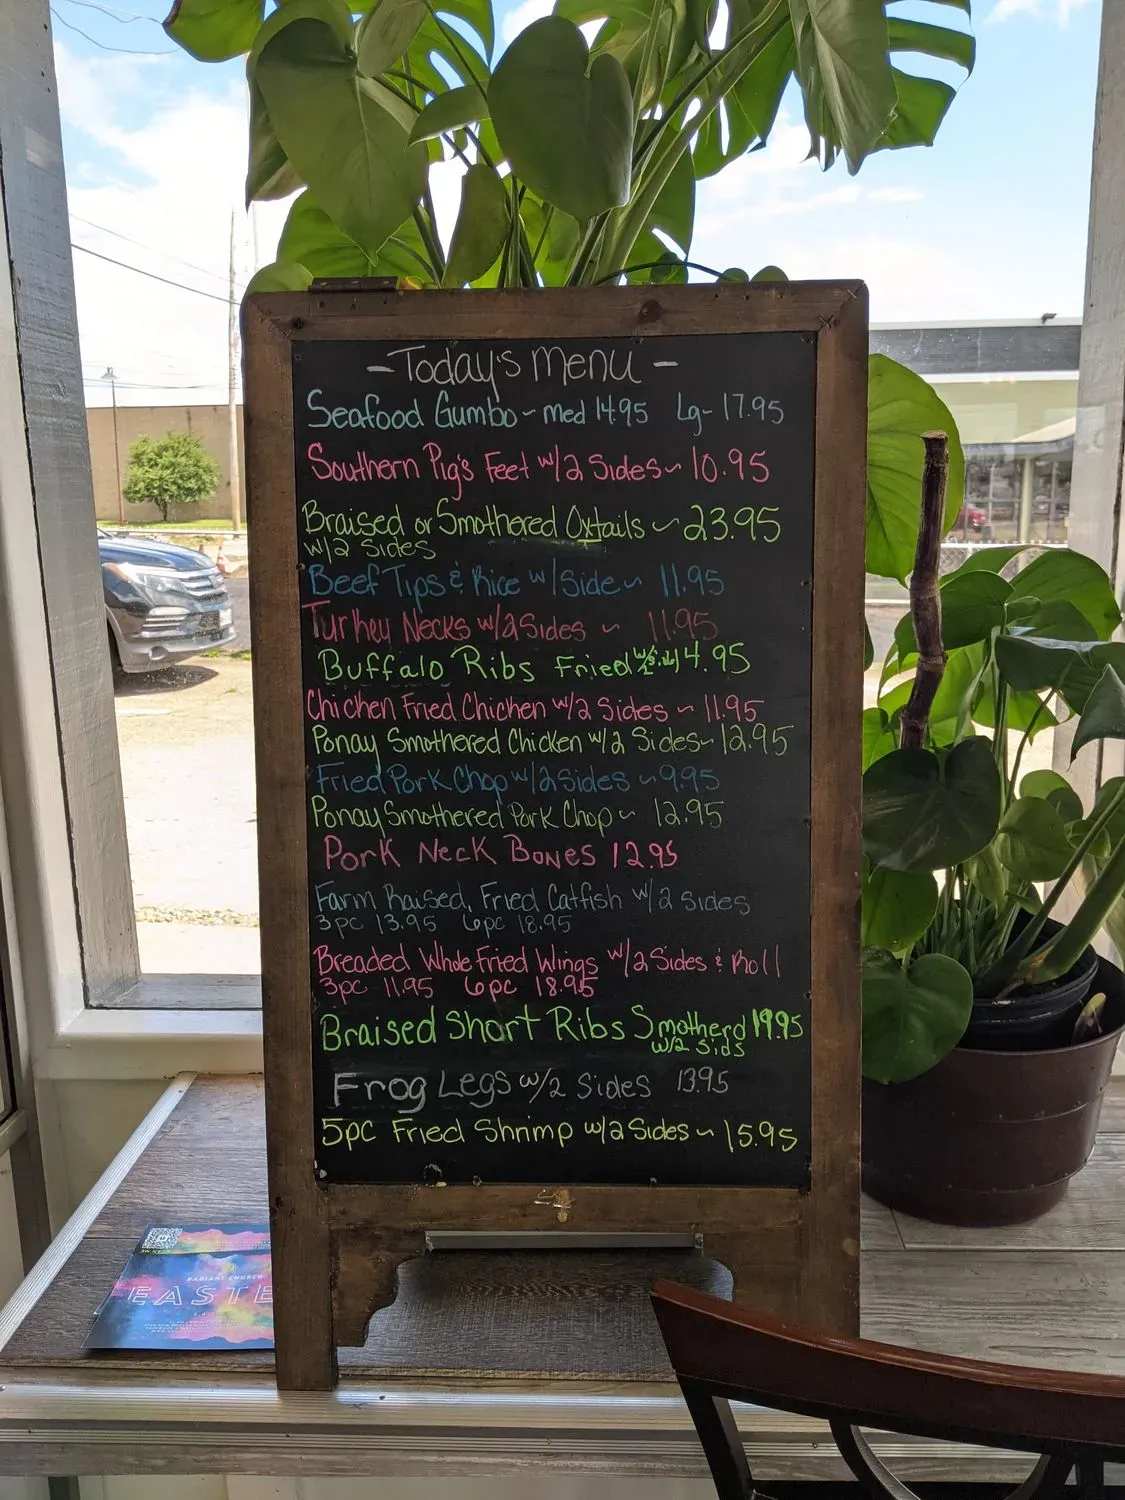 - Today's Menu -
Seafood Gumbo ~ med 14.95 Lg- 17.95
Southern Pig's Feet w/2 Sides ~ 10.95
Braised or Smothered Oxtails ~ 23.95
w/2 Sides
Beef Tips & Rice w/Side ~ 11.95
Turkey Necks w/2 Sides ~ 11.95
Buffalo Ribs Fried w/2 Sides 14.95
Chicken Fried Chicken w/2 Sides ~ 11.95
Ponay Smothered Chicken w/2 Sides ~ 12.95
Fried Pork Chop w/2 Sides ~ 9.95
Ponay Smothered Pork Chop ~ 12.95
Pork Neck Bones 12.95
Farm Raised, Fried Catfish w/2 Sides
3pc 13.95 6pc 18.95
Breaded Whole Fried Wings w/2 Sides & Roll
3pc 11.95 6pc 18.95
Braised Short Ribs Smotherd 19.95
w/2 Sids
Frog Legs w/2 Sides 13.95
5pc Fried Shrimp w/2 Sides ~ 15.95
RADIANT CHURCH
EASTE